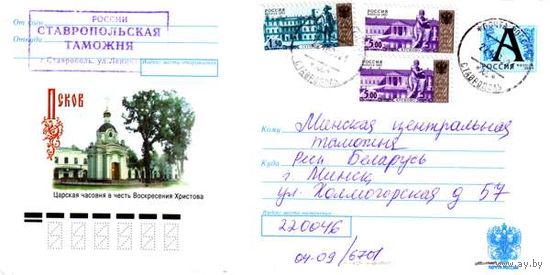 РОССИИ
СТАВРОПОЛЬСКАЯ
ТАМОЖНЯ
г. Ставрополь, ул. Ленина
От кого
Откуда
Индекс места отправления
Псков
Царская часовня в честь Воскресения Христова
1.50
5.00
5.00
РОССИЯ
А
РОССИЯ
СТАВРОПОЛЬ
Кому Минская центральная
таможня
Куда Респ Беларусь
г. Минск
ул. Холмогорская д 57
220046
Индекс места назначения
04-09/6701
ПОЧТА РОССИИ
www.ay.by